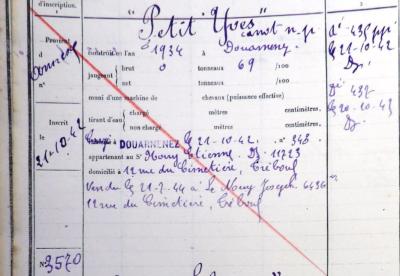 d'inscription.
1
2
3
"Petit Yves"
canot n.p.
Provient d
construit en l'an 1934 à Douarnenez
jaugeant brut 0 tonneaux 69 /100
net tonneaux /100
muni d'une machine de chevaux (puissance effective)
tirant d'eau chargé mètres centimètres.
non chargé mètres centimètres.
Inscrit le 21-10-42
DOUARNENEZ le 21-10-42. n° 348
appartenant au Sr Le Nouy Etienne. Dz 11723
domicilié à 12 rue du Cimetière, Tréboul
Vendu le 21-7-44 à Le Nouy Joseph 6436
12 rue du Cimetière, Tréboul
Dé 435
le 21-10-42
Dz.
Dé 437
le 20-10-43
Dz.
N° 3570